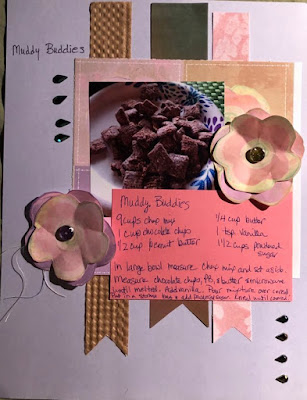 Muddy Buddies
Muddy Buddies
9 cups chex mix 1/4 cup butter
1 cup chocolate chips 1 tsp vanilla
1/2 cup peanut butter 1 1/2 cups powdered sugar
in large bowl measure chex mix and set aside
Measure chocolate chips, Pb, + butter + microwave
until melted. Add vanilla. Pour mixture over cereal
Put in a storage bag + add powdered sugar. Knead until coated.